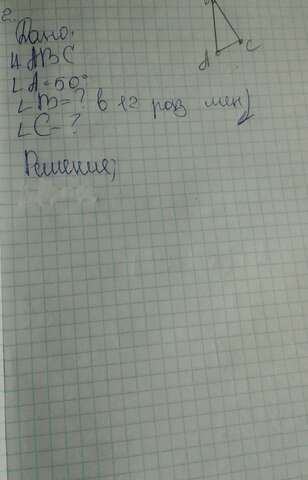 2.
Дано:
Δ ABC
∠A=50°
∠B=? в 12 раз мен
∠C-?
A C
Решение;